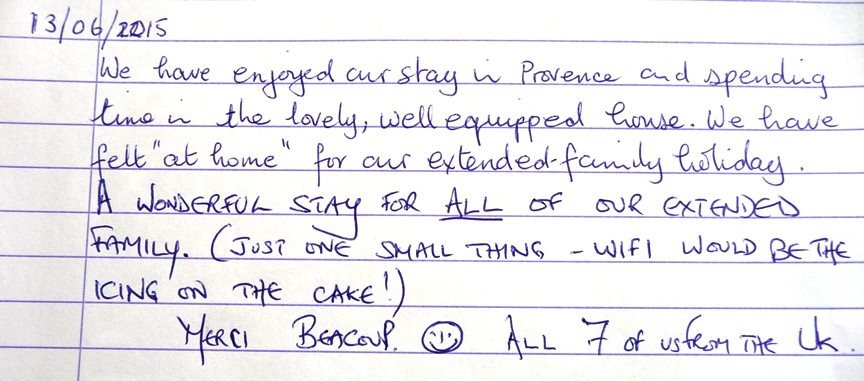 13/06/2015
We have enjoyed our stay in Provence and spending
time in the lovely, well equipped house. We have
felt "at home" for our extended-family holiday.
A WONDERFUL STAY FOR ALL OF OUR EXTENDED
FAMILY. (JUST ONE SMALL THING - WIFI WOULD BE THE
ICING ON THE CAKE!)
MERCI BEACOUP. ☺ ALL 7 OF US FROM THE UK.